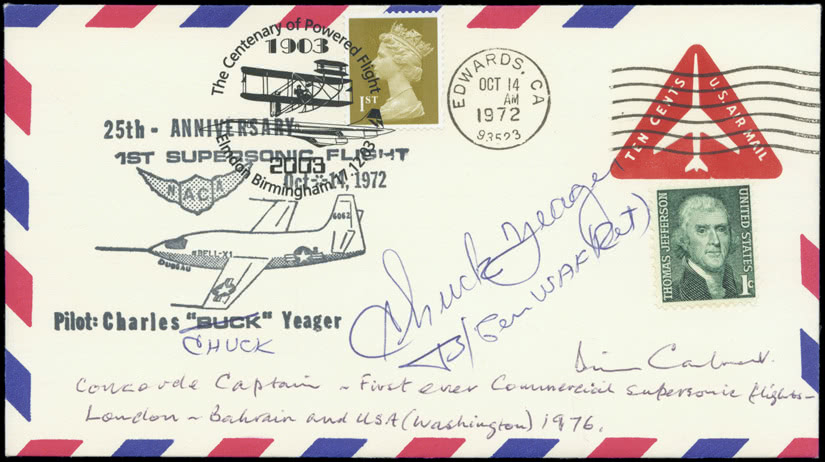 The Centenary of Powered Flight
1903
2003
Elmdon Birmingham
1ST
EDWARDS, CA
OCT 14
AM
1972
93523
TEN CENTS
U.S. AIR MAIL
25th - ANNIVERSARY
1ST SUPERSONIC FLIGHT
Oct. 14, 1972
NACA
6062
BELL-X1
THOMAS JEFFERSON
UNITED STATES
1c
Pilot: Charles "BUCK" Yeager
CHUCK
Chuck Yeager
B/Gen USAF (Ret)
Concorde Captain ~ First ever Commercial supersonic flights -
London ~ Bahrain and USA (Washington) 1976.